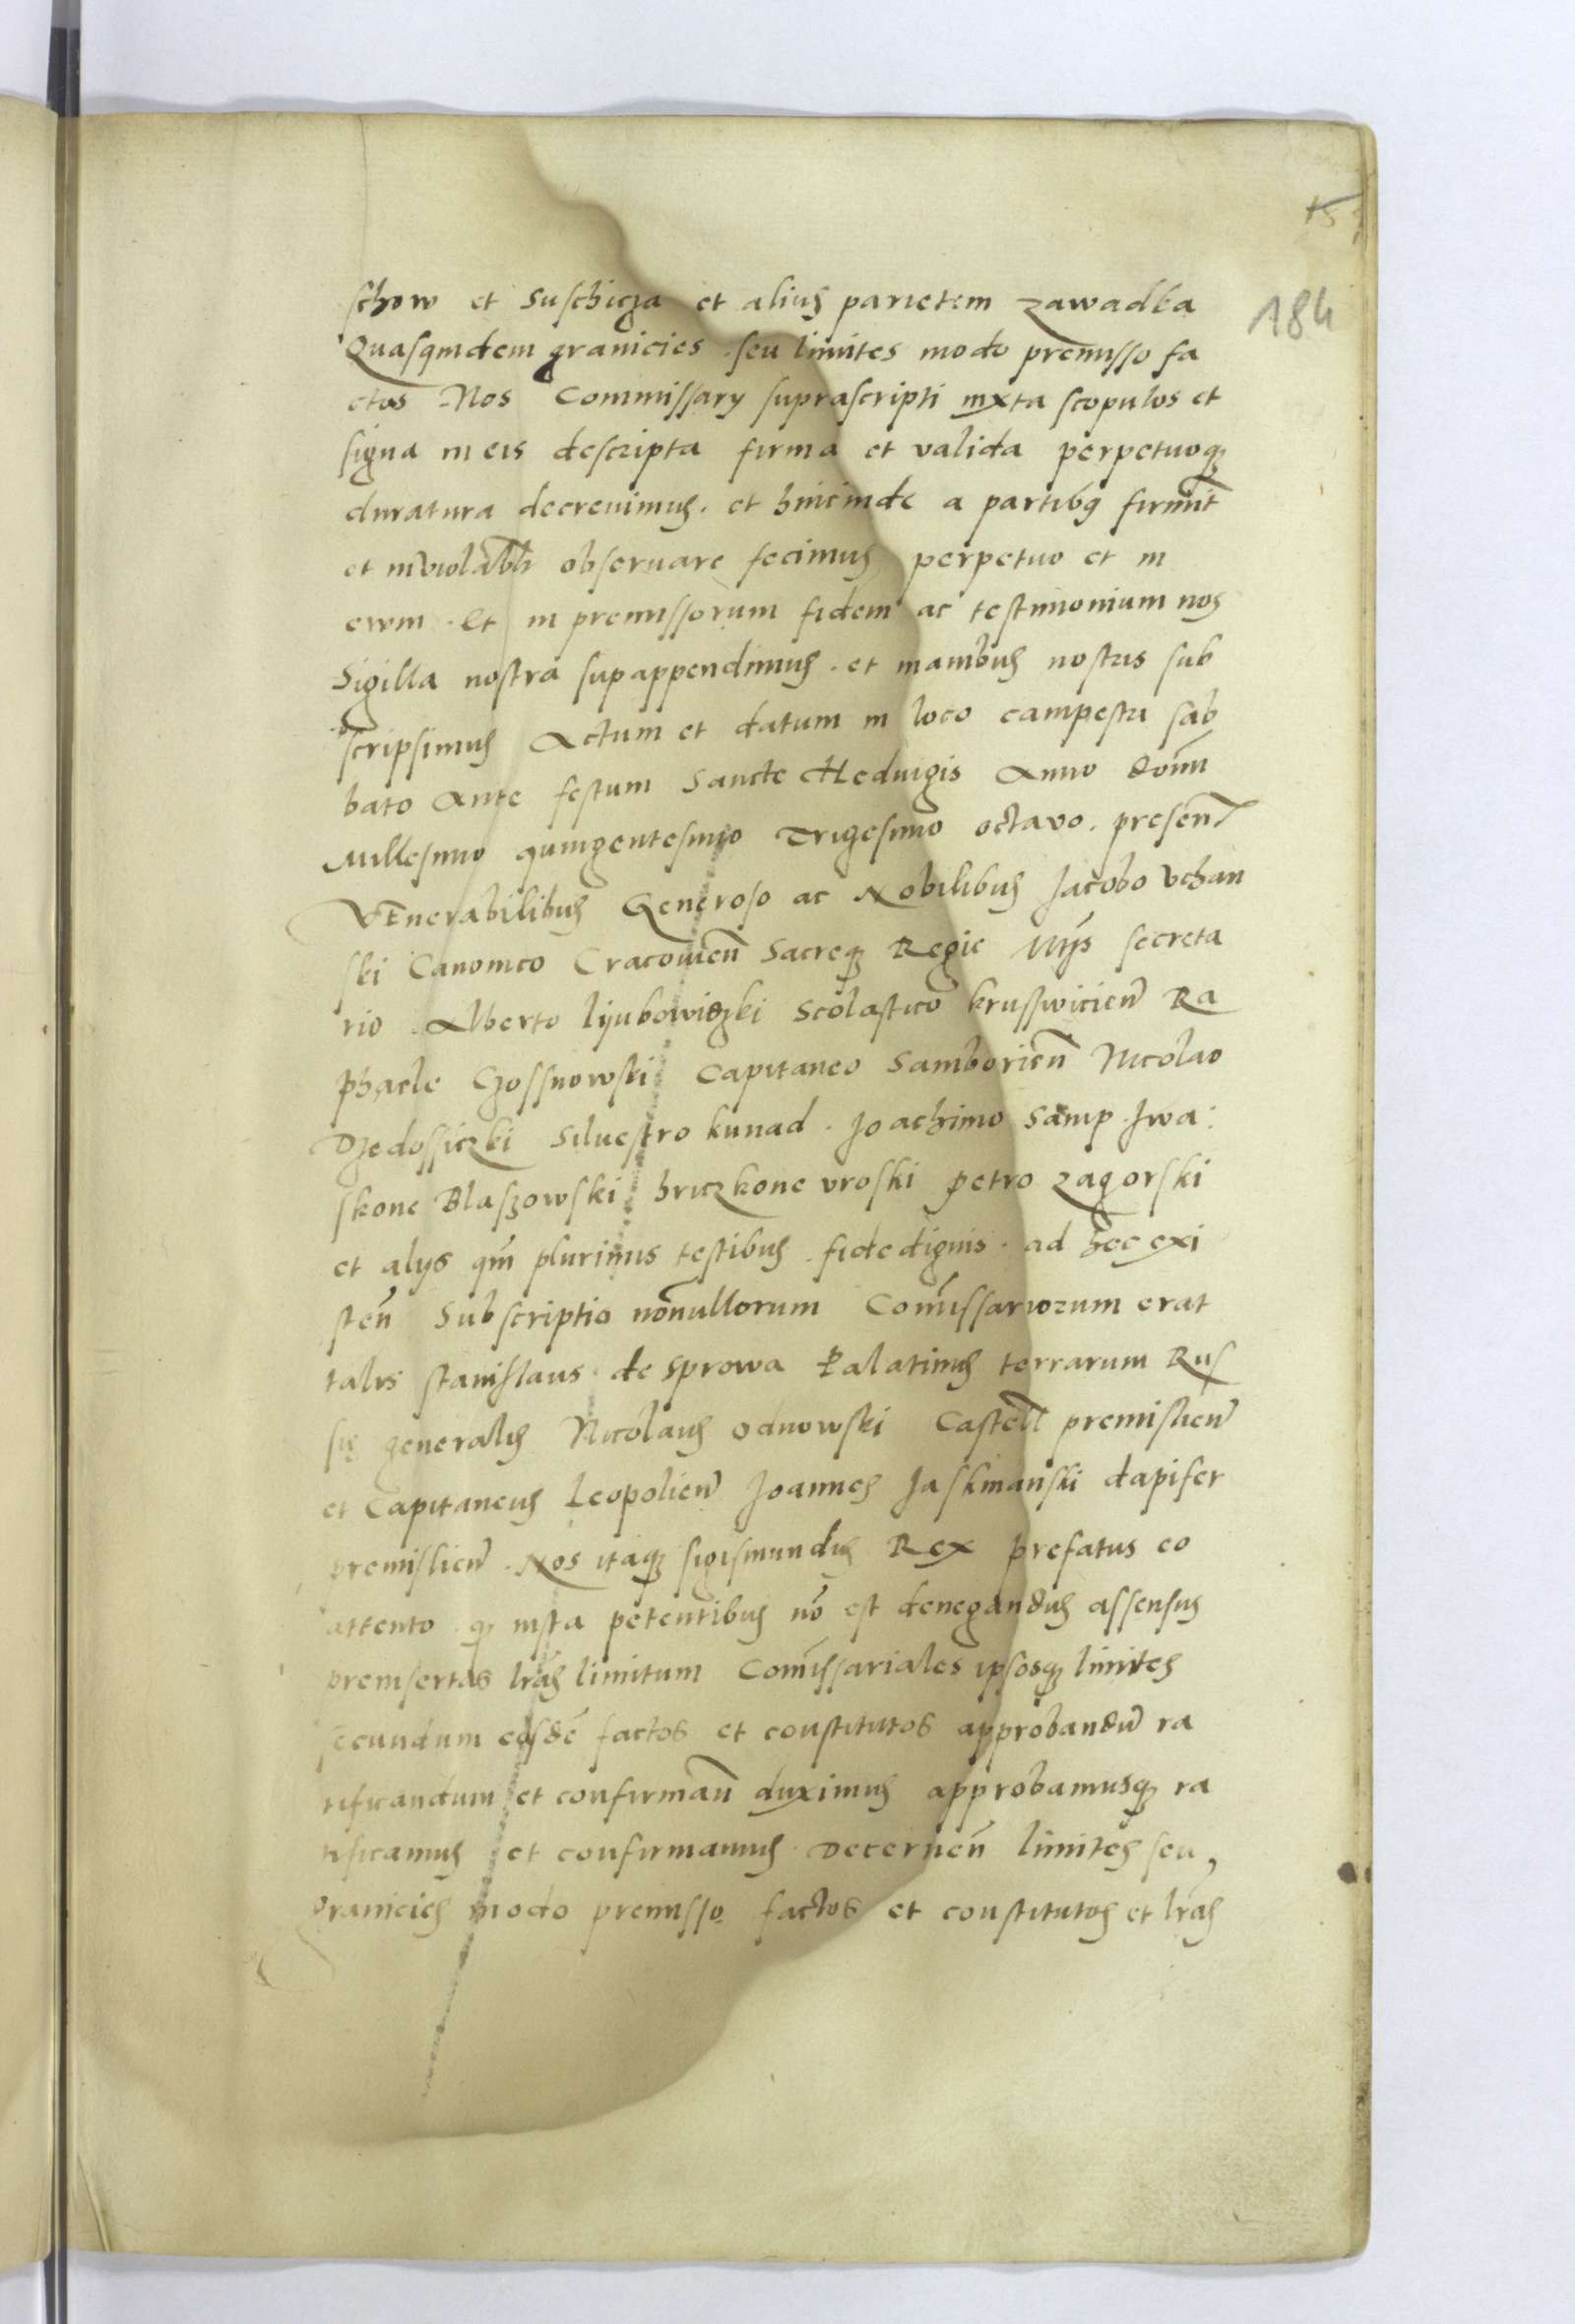 184
schow et Suschicza et alius parietem zawadka
Quasqmdem granicies seu limites modo premisso fa
ctos Nos Commissary suprascripti iuxta scopulos et
signa in eis descripta firma et valida perpetuoq;
duratura decreuimus. et hincinde a partibus firmit̃
et inviolabilr̃ observare fecimus perpetuo et in
ewm. Et in premissorum fidem ac testimonium nos
Sigilla nostra supappendimus. et manibus nostris sub
scripsimus Actum et datum in loco campestri sab
bato Ante festum Sancte Hedwigis Anno dom̃
Millesimo quingentesimo Trigesimo octavo. presen̄t
Venerabilibus Generoso ac Nobilibus Jacobo Vchan
ski Canonico Cracovien̄ Sacreq; Regie Mt̃ijs secreta
rio Alberto lyubowiczki Scolastico krusswicien̄ Ra
phaele Czossnowski Capitaneo Samborien̄ Nicolao
Dzedossiczki Siluestro kunad. Joachimo Samp Iwa:
skone Blaszowski hriczkone vroski petro zagorski
et alijs qm̃ plurimis testibus fidedignis. ad hec exi
sten̄ Subscriptio nonnullorum Com̃issariorum erat
talis stanislaus de Sprowa Palatinus terrarum Rus
sie generalis Nicolaus odnowski Castell̃ premislien̄
et Capitaneus Leopolien̄ Joannes Jaskmanski dapifer
premislien̄. Nos itaq; sigismundus Rex prefatus eo
attento q; iusta petentibus nō est denegandus assensus
preinsertas lr̃as limitum Com̃issariales ipsosq; limites
secundum easdē factos et constitutos approbandū ra
tificandum et confirman̄ duximus approbamusq; ra
tificamus et confirmamus. Decernen̄ limites seu
granicies modo premisso factos et constitutos et lr̃as